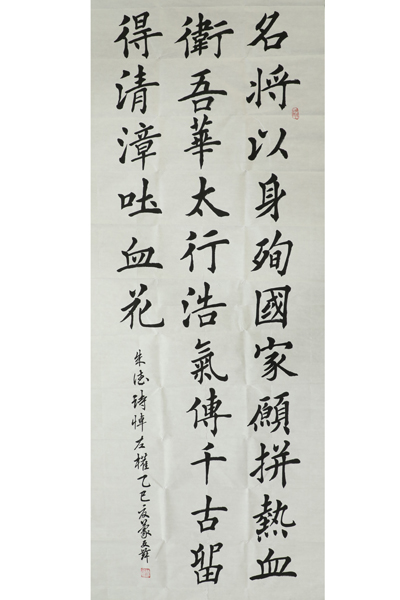 名将以身殉國家願拼熱血
衛吾華太行浩氣傳千古留
得清漳吐血花
朱德诗悼左權乙巳